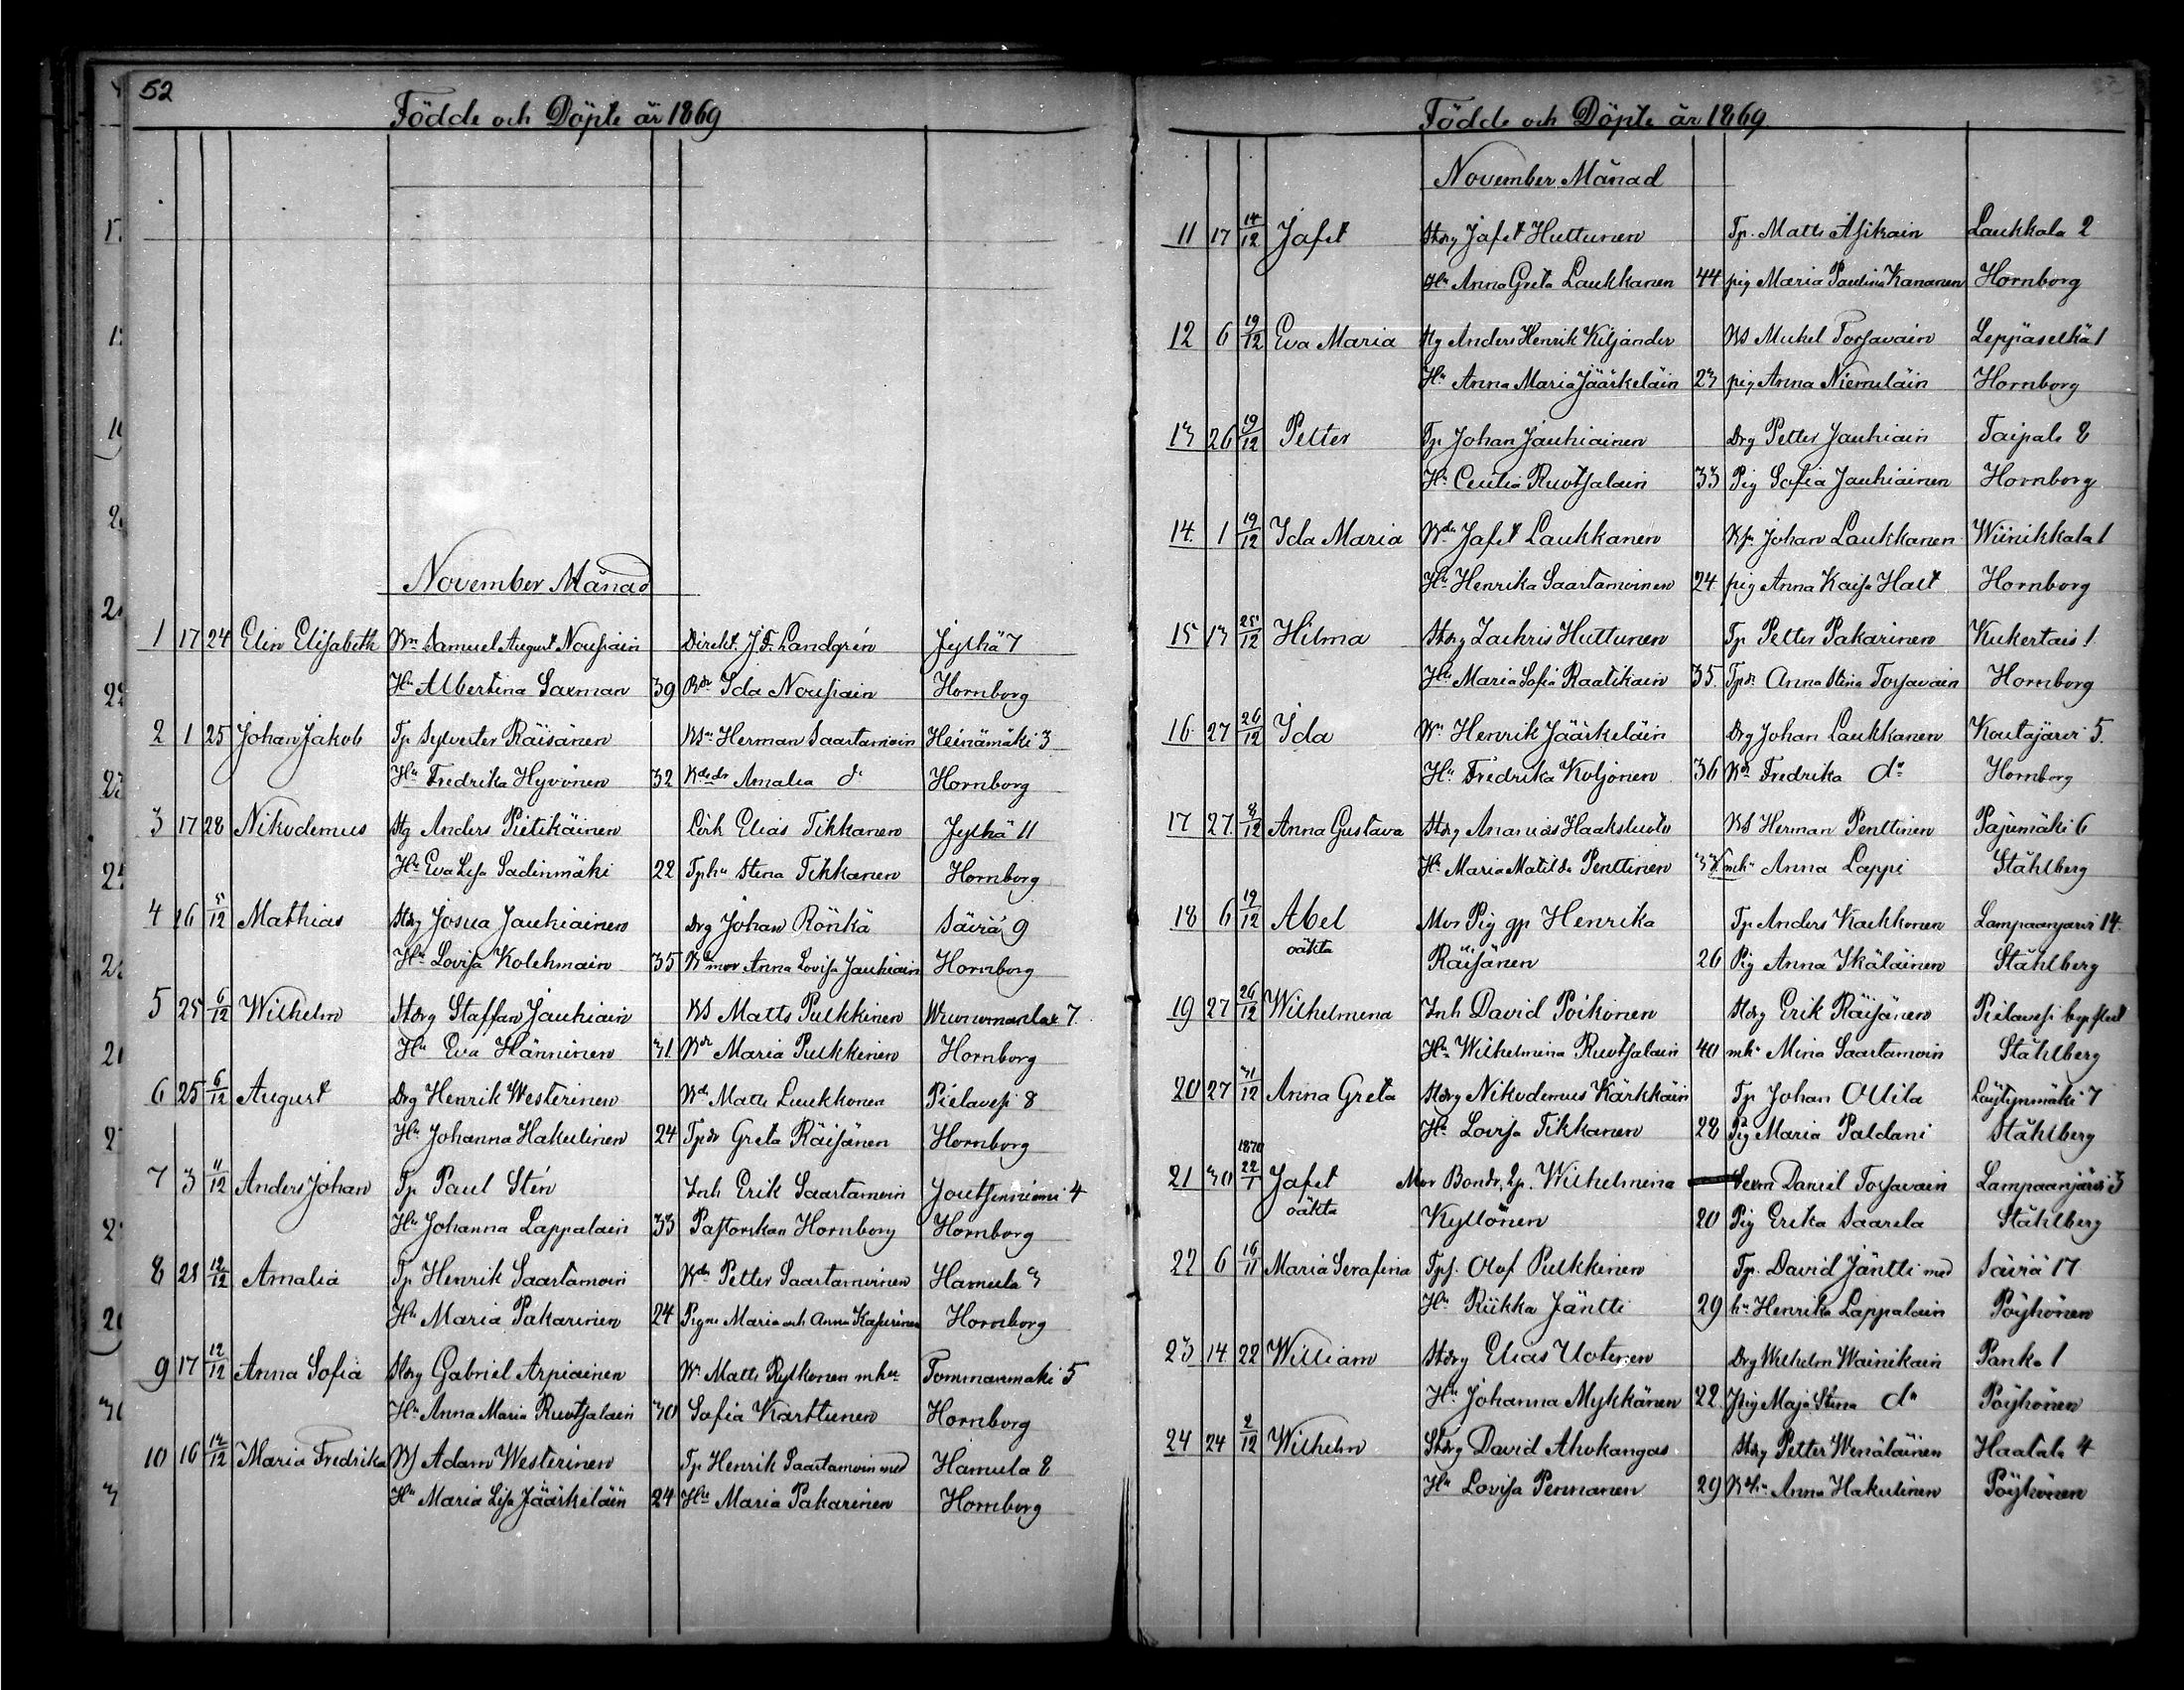 52
Födde och Döpte år 1869
November Månad
1 17 24 Elin Elisabeth Bn Samuel August Nousiain Direkt. J. F. Landgrén Jylhä 7
Hu Albertina Saxman 39 Bdr Ida Nousiain Hornborg
2 1 25 Johan Jakob Tp Sylvester Räisänen Herman Saastamoin Heinämäki 3
Hu Fredrika Hyvönen 32 Amalia do Hornborg
3 17 28 Nikodemus Anders Pietikäinen Elias Tikkanen Jylhä 11
Hu Eva Lisa Sadinmäki 22 Tphu Stina Tikkanen Hornborg
4 26 5/12 Mathias Josua Jauhiainen Drg Johan Rönkä Säviä 9
Hu Lovisa Kolehmain 35 Anna Lovisa Jauhiain Hornborg
5 25 6/12 Wilhelm Staffan Jauhiain Matts Pulkkinen 7.
Hu Eva Hänninen 31 Maria Pulkkinen Hornborg
6 25 6/12 August Drg Henrik Westerinen Matts Luukkonen Pielavesi 8
Hu Johanna Hakulinen 24 Tpdr Greta Räisänen Hornborg
7 3 11/12 Anders Johan Tp Paul Stén Inh Erik Saastamoin Joutsenniemi 4
Hu Johanna Lappalain 33 Pastorskan Hornborg Hornborg
8 28 12/12 Amalia Tp Henrik Saastamoin Petter Saastamoinen Hamula 3
Hu Maria Pakarinen 24 Pigne Maria och Anna Kasurinen Hornborg
9 17 12/12 Anna Sofia Gabriel Arpiainen Matts Rytkonen mhu Tommanmäki 5
Hu Anna Maria Ruotsalain 30 Sofia Karttunen Hornborg
10 16 12/12 Maria Fredrika Adam Westerinen Tp Henrik Saastamoin med Hamula 8
Hu Maria Lisa Jääskeläin 24 Hu Maria Pakarinen Hornborg
Födde och Döpte år 1869
November Månad
11 17 14/12 Jafet Jafet Huttunen Tp. Matts Asikain Laukkala 2
Hu Anna Greta Laukkanen 44 pig Maria Paulina Kananen Hornborg
12 6 19/12 Eva Maria Anders Henrik Kiljander Mickel Torsavain Leppäselkä 1
Hu Anna Maria Jääskeläin 23 pig Anna Niemeläin Hornborg
13 26 19/12 Petter Tp Johan Jauhiainen Drg Petter Jauhiain Taipale 8
Hu Cecilia Ruotsalain 33 Pig Sofia Jauhiainen Hornborg
14 1 19/12 Ida Maria Jafet Laukkanen Johan Laukkanen Wiinikkala 1
Hu Henrika Saastamoinen 24 pig Anna Kaisa Halt Hornborg
15 13 25/12 Hilma Zachris Huttunen Tp Petter Pakarinen Kukertais 1
Hu Maria Sofia Raatikain 35. Tpdr Anna Stina Torsavain Hornborg
16 27 26/12 Ida Henrik Jääskeläin Drg Johan Laukkanen Koutajärvi 5.
Hu Fredrika Koljonen 36 Fredrika do Hornborg
17 27 8/12 Anna Gustava Ananias Haaksluoto Herman Penttinen Pajumäki 6
Hu Maria Matilda Penttinen mhu Anna Lappi Ståhlberg
18 6 19/12 Abel Mor Pig gp Henrika Tp Anders Kaukkonen Lampaanjärvi 14.
oäkta Räisänen 26 Pig Anna Ikäläinen Ståhlberg
19 27 26/12 Wilhelmina Inh David Poikonen Erik Räisänen Pielavesi
Hu Wilhelmina Ruotsalain 40 mhu Mina Saastamoin Ståhlberg
20 27 31/12 Anna Greta Nikodemus Kärkkäin Tp Johan Ollila Löytynmäki 7
Hu Lovisa Tikkanen 28 Pig Maria Paldani Ståhlberg
21 30 1870 22/1 Jafet Mor Wilhelmina Daniel Torsavain Lampaanjärvi 3
oäkta Kyllönen 20 Pig Erika Saarela Ståhlberg
22 6 16/11 Maria Serafina Olof Pulkkinen Tp. David Jäntti med Säviä 17
Hu Riikka Jäntti 29 hu Henrika Lappalain Pöyhönen
23 14 22 William Elias Uotinen Drg Wilhelm Wainikain Panka 1
Hu Johanna Mykkänen 22 Maja Stina do Pöyhönen
24 24 2/12 Wilhelm David Ahokangas Petter Wenäläinen Haatala 4
Hu Lovisa Pennanen 29 Anna Hakulinen Pöyhönen